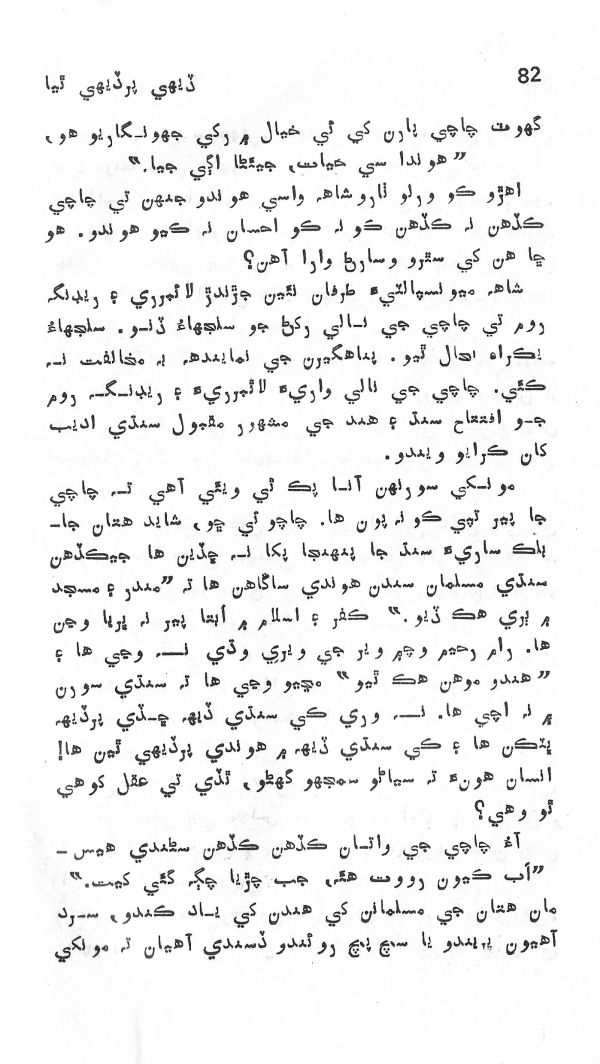 82
ڏيهي پرڏيهي ٿيا
گهوٽ چاچي يارن کي ئي خيال ۾ رکي جهونگاريو هو،
”هوندا سي حيات، جيئڻا اڳي جيا.“
اهڙو ڪو ورلو ٺاروشاھ واسي هوندو جنهن تي چاچي
ڪڏهن نہ ڪڏهن ڪو نہ ڪو احسان نہ ڪيو هوندو. هو
ڇا هن کي سگهو وسارڻ وارا آهن؟
شاھ ميونسپالٽيءَ طرفان نئين جڙندڙ لائبرري ۽ ريڊنگ
روم تي چاچي جي نالي رکڻ جو سلجهاءُ ڏنو. سلجهاءُ
يڪراءِ بحال ٿيو. پناهگيرن جي نمايندھ بہ مخالفت نہ
ڪئي. چاچي جي نالي واريءَ لائبرريءَ ۽ ريڊنگ روم
جو افتتاح سنڌ ۽ هند جي مشهور مقبول سنڌي اديب
کان ڪرايو ويندو.
مونکي سورنهن آنا پڪ ٿي ويئي آهي تہ چاچي
جا پير ٿڙي ڪونہ پون ها. چاچو ئي ڇو، شايد هتان جا
بلڪ ساريءَ سنڌ جا پنهنجا پکا نہ ڇڏين ها جيڪڏهن
سنڌي مسلمان سندن هوندي ساڳاهن ها تہ ”مندر ۽ مسجد
۾ ٻري هڪ ڏيو.“ ڪفر ۽ اسلام ۾ اُبتا پير نہ ڀريا وڃن
ها. رام رحيم وچ ۾ وير جي ويري وڌي نہ وڃي ها ۽
”هندو مومن هڪ ٿيو“ مڃيو وڃي ها تہ سنڌي سورن
۾ نہ اچي ها. نہ وري کي سنڌي ڏيھ ڇڏي پرڏيھ
ڀٽڪن ها ۽ کي سنڌي ڏيھ ۾ هوندي پرڏيهي ٿين ها!
انسان هونءَ تہ سياڻو سمجهو گهڻو، ٿڏي تي عقل کوهي
ٿو وهي؟
آءٌ چاچي جي واتان ڪڏهن ڪڏهن سڻندي هيس ـ
”اَب ڪيون رووت هئہ، جب چڙيا چڳ گئي کيت.“
مان هتان جي مسلمانن کي هندن کي ياد ڪندو، سرد
آهيون ڀريندو يا سچ پچ روئندو ڏسندي آهيان تہ مونکي